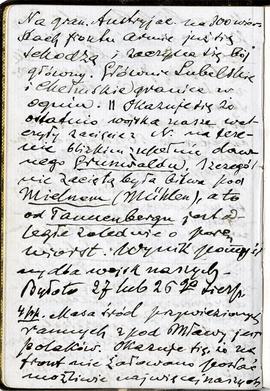 Na gran. Austryjac. na 300 wior-
stach frontu armie już się
schodzą i zaczyna się bój
główny. Głównie Lubelskie
i Chełmskie granice w
ogniu. || Okazuje się że
ostatnio wojska nasze
zacięcie N. na tere-
nie blizkim zupełnie daw-
nego Grunwaldu. Szczegól-
nie zaciętą była bitwa pod
Mielnem (Mühlen), a to
od Tannenbergu jest od-
ległe zaledwie o parę
wiorst. Wynik pomyśl-
ny dla wojsk naszych.
Było to 27 lub 26 sierp.
Masa śród przywiezionych
rannych z pod Mławy jest
polaków. Okazuje się, że na
front nie żałowano posłać
możliwie najwięcej naszych